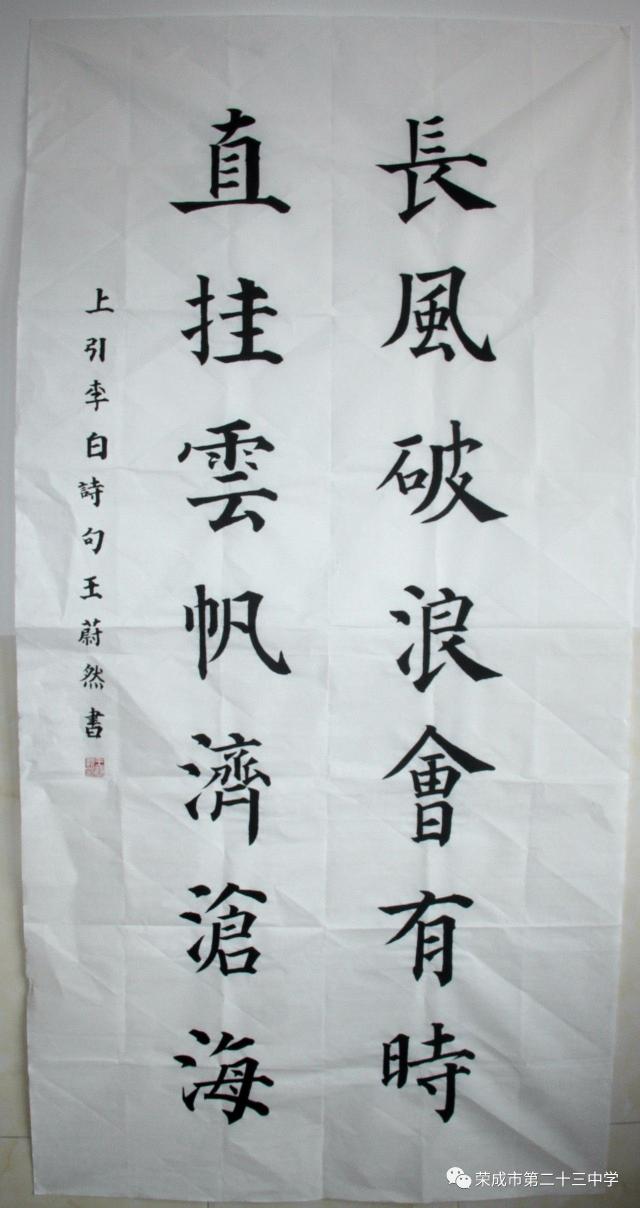 長風破浪會有時
直挂雲帆濟滄海
上引李白詩句王蔚然書
荣成市第二十三中学